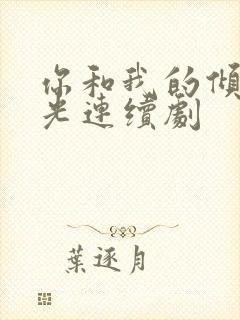 你和我的傾
光連續劇
葉逐月